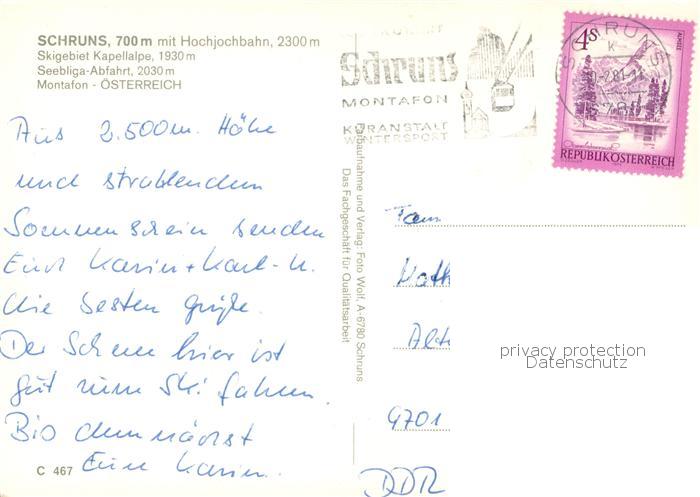 SCHRUNS, 700 m mit Hochjochbahn, 2300 m
Skigebiet Kapellalpe, 1930 m
Seebliga-Abfahrt, 2030 m
Montafon - ÖSTERREICH
Aus 2.500 m. Höhe
und strahlendem
Sonnenschein senden
Euch Karin + Karl-H.
die besten Grüße.
Der Schnee hier ist
gut zum Ski fahren.
Bis demnächst
Eure Karin.
C 467
Farbaufnahme und Verlag: Foto Wolf, A-6780 Schruns
Das Fachgeschäft für Qualitätsarbeit
Schruns
MONTAFON
KURANSTALT
WINTERSPORT
SCHRUNS
4S
ALMSEE
REPUBLIK ÖSTERREICH
Fam
Math
Alt
9701
DDR
privacy protection
Datenschutz